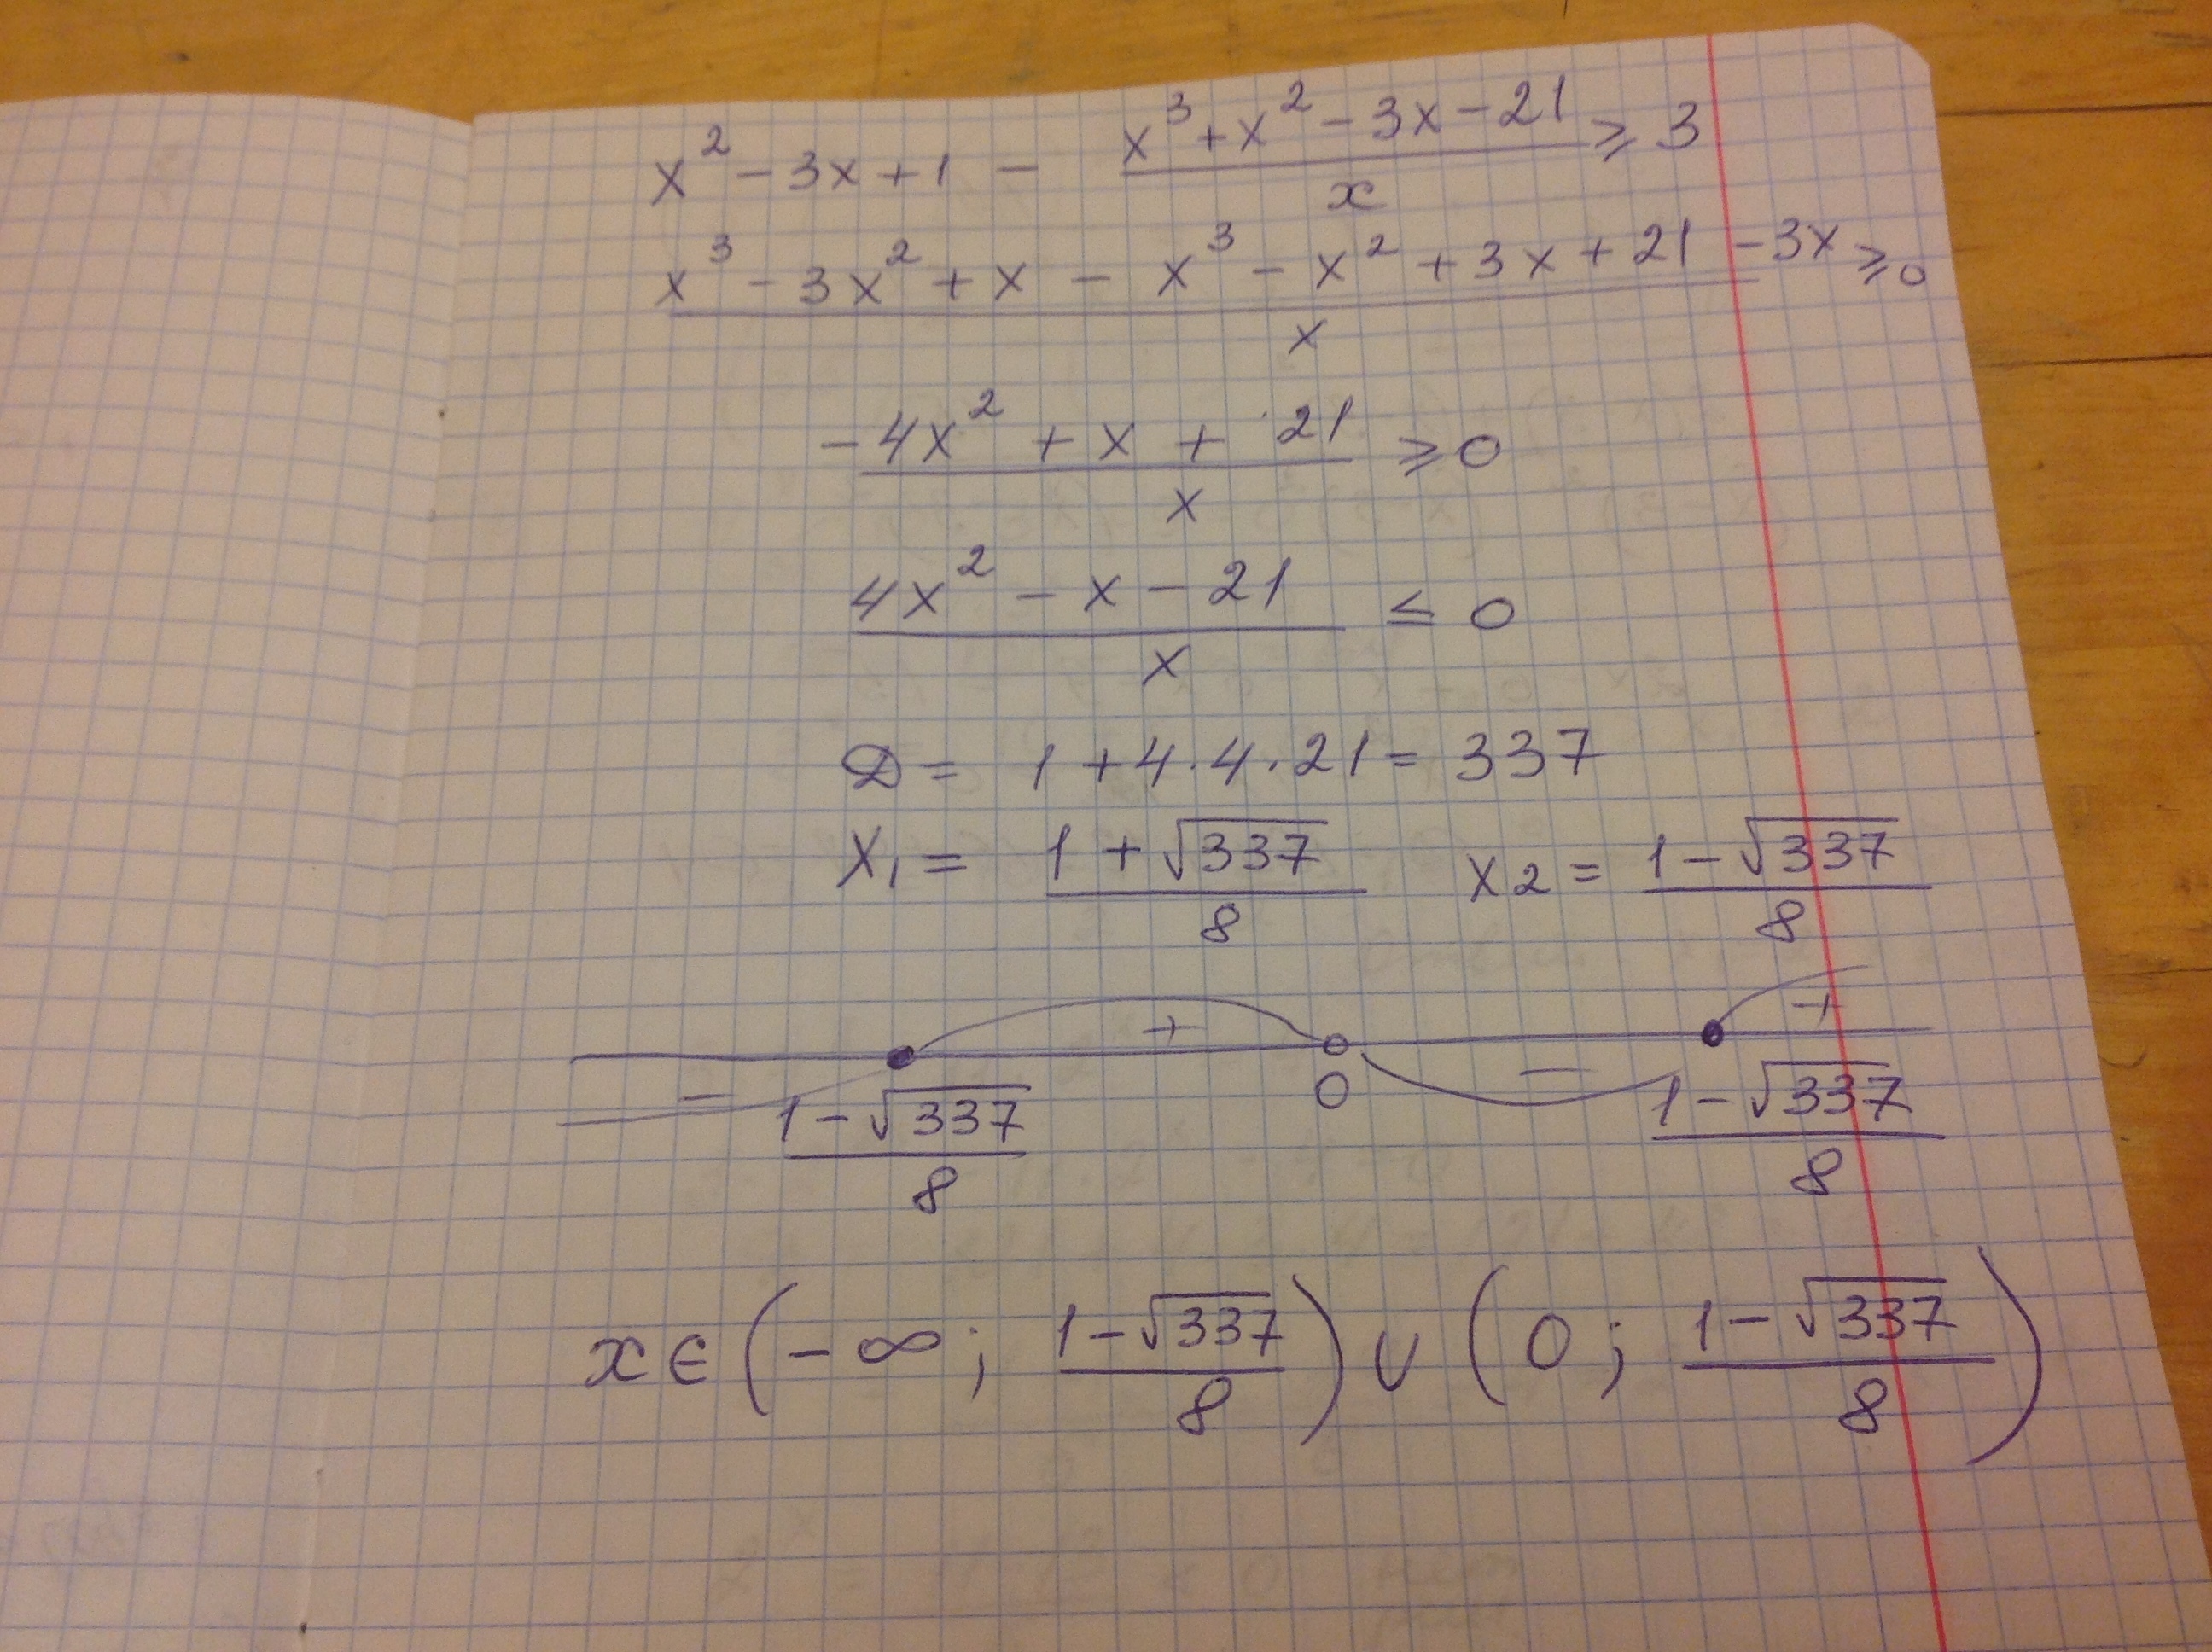 x² - 3x + 1 - (x³ + x² - 3x - 21)/x ⩾ 3
(x³ - 3x² + x - x³ - x² + 3x + 21 - 3x)/x ⩾ 0
(-4x² + x + 21)/x ⩾ 0
(4x² - x - 21)/x ≤ 0
D = 1 + 4 · 4 · 21 = 337
x₁ = (1 + √337)/8 x₂ = (1 - √337)/8
- + - +
(1 - √337)/8 0 (1 - √337)/8
x ∈ (-∞; (1 - √337)/8) ∪ (0; (1 - √337)/8)